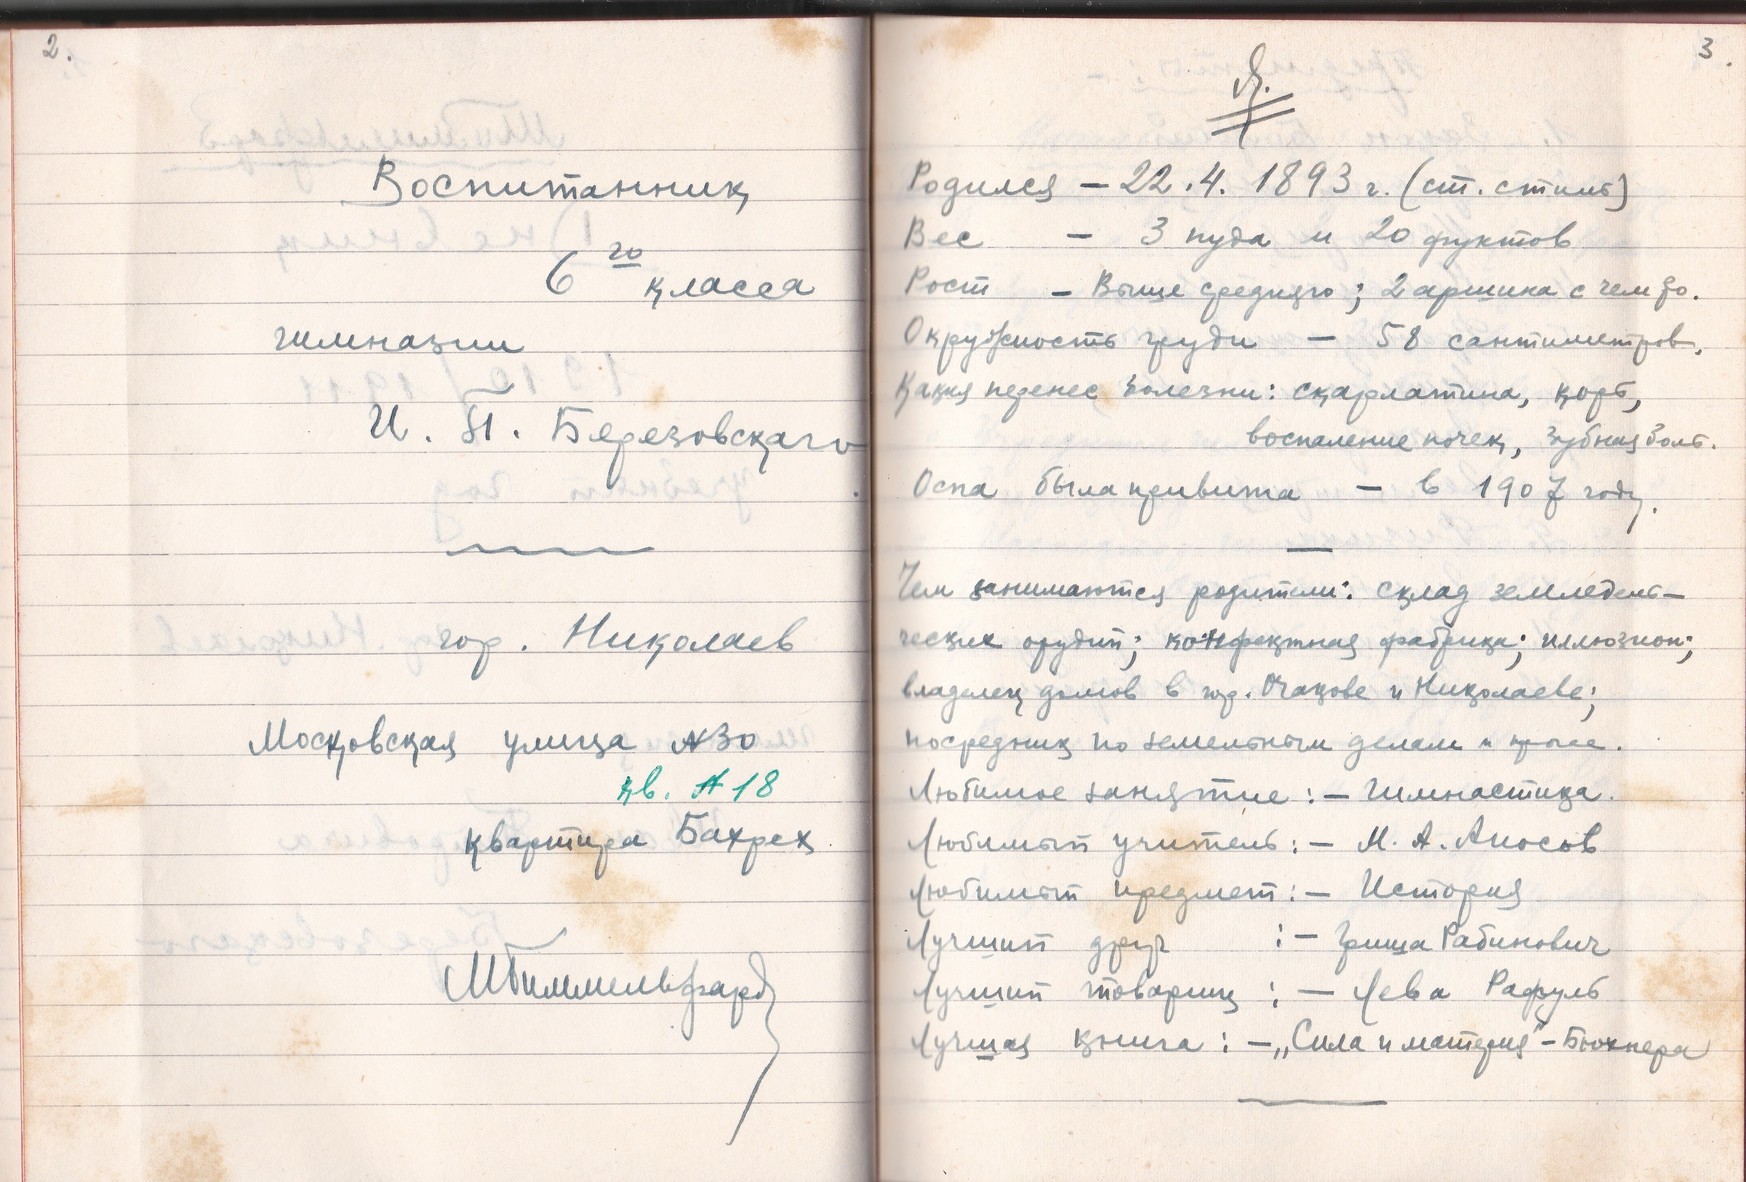 2.
Воспитанник
6го класса
гимназии
И. П. Березовскаго
гор. Николаев
Московская улица №30
кв. №18
квартира Бахрех
3.
Я.
Родился — 22.4. 1893 г. (ст. стиль)
Вес — 3 пуда и 20 фунтов
Рост — Выше среднего; 2 аршина с чем то.
Окружность груди — 58 сантиметров.
Какия перенес болезни: скарлатина, корь,
воспаление почек, зубная боль.
Оспа была привита — в 1907 году.
Чем занимаются родители: склад земледель-
ческих орудий; конфектная фабрика; иллюзион;
владелец домов в гор. Очакове и Николаеве;
посредник по земельным делам и проч.
Любимое занятие: — Гимнастика.
Любимый учитель: — М. А.
Любимый предмет: — История
Лучший друг : — Гриша Рабинович
Лучший товарищ : — Лева Рафуль
Лучшая книга : — „Сила и материя" — Бюхнера